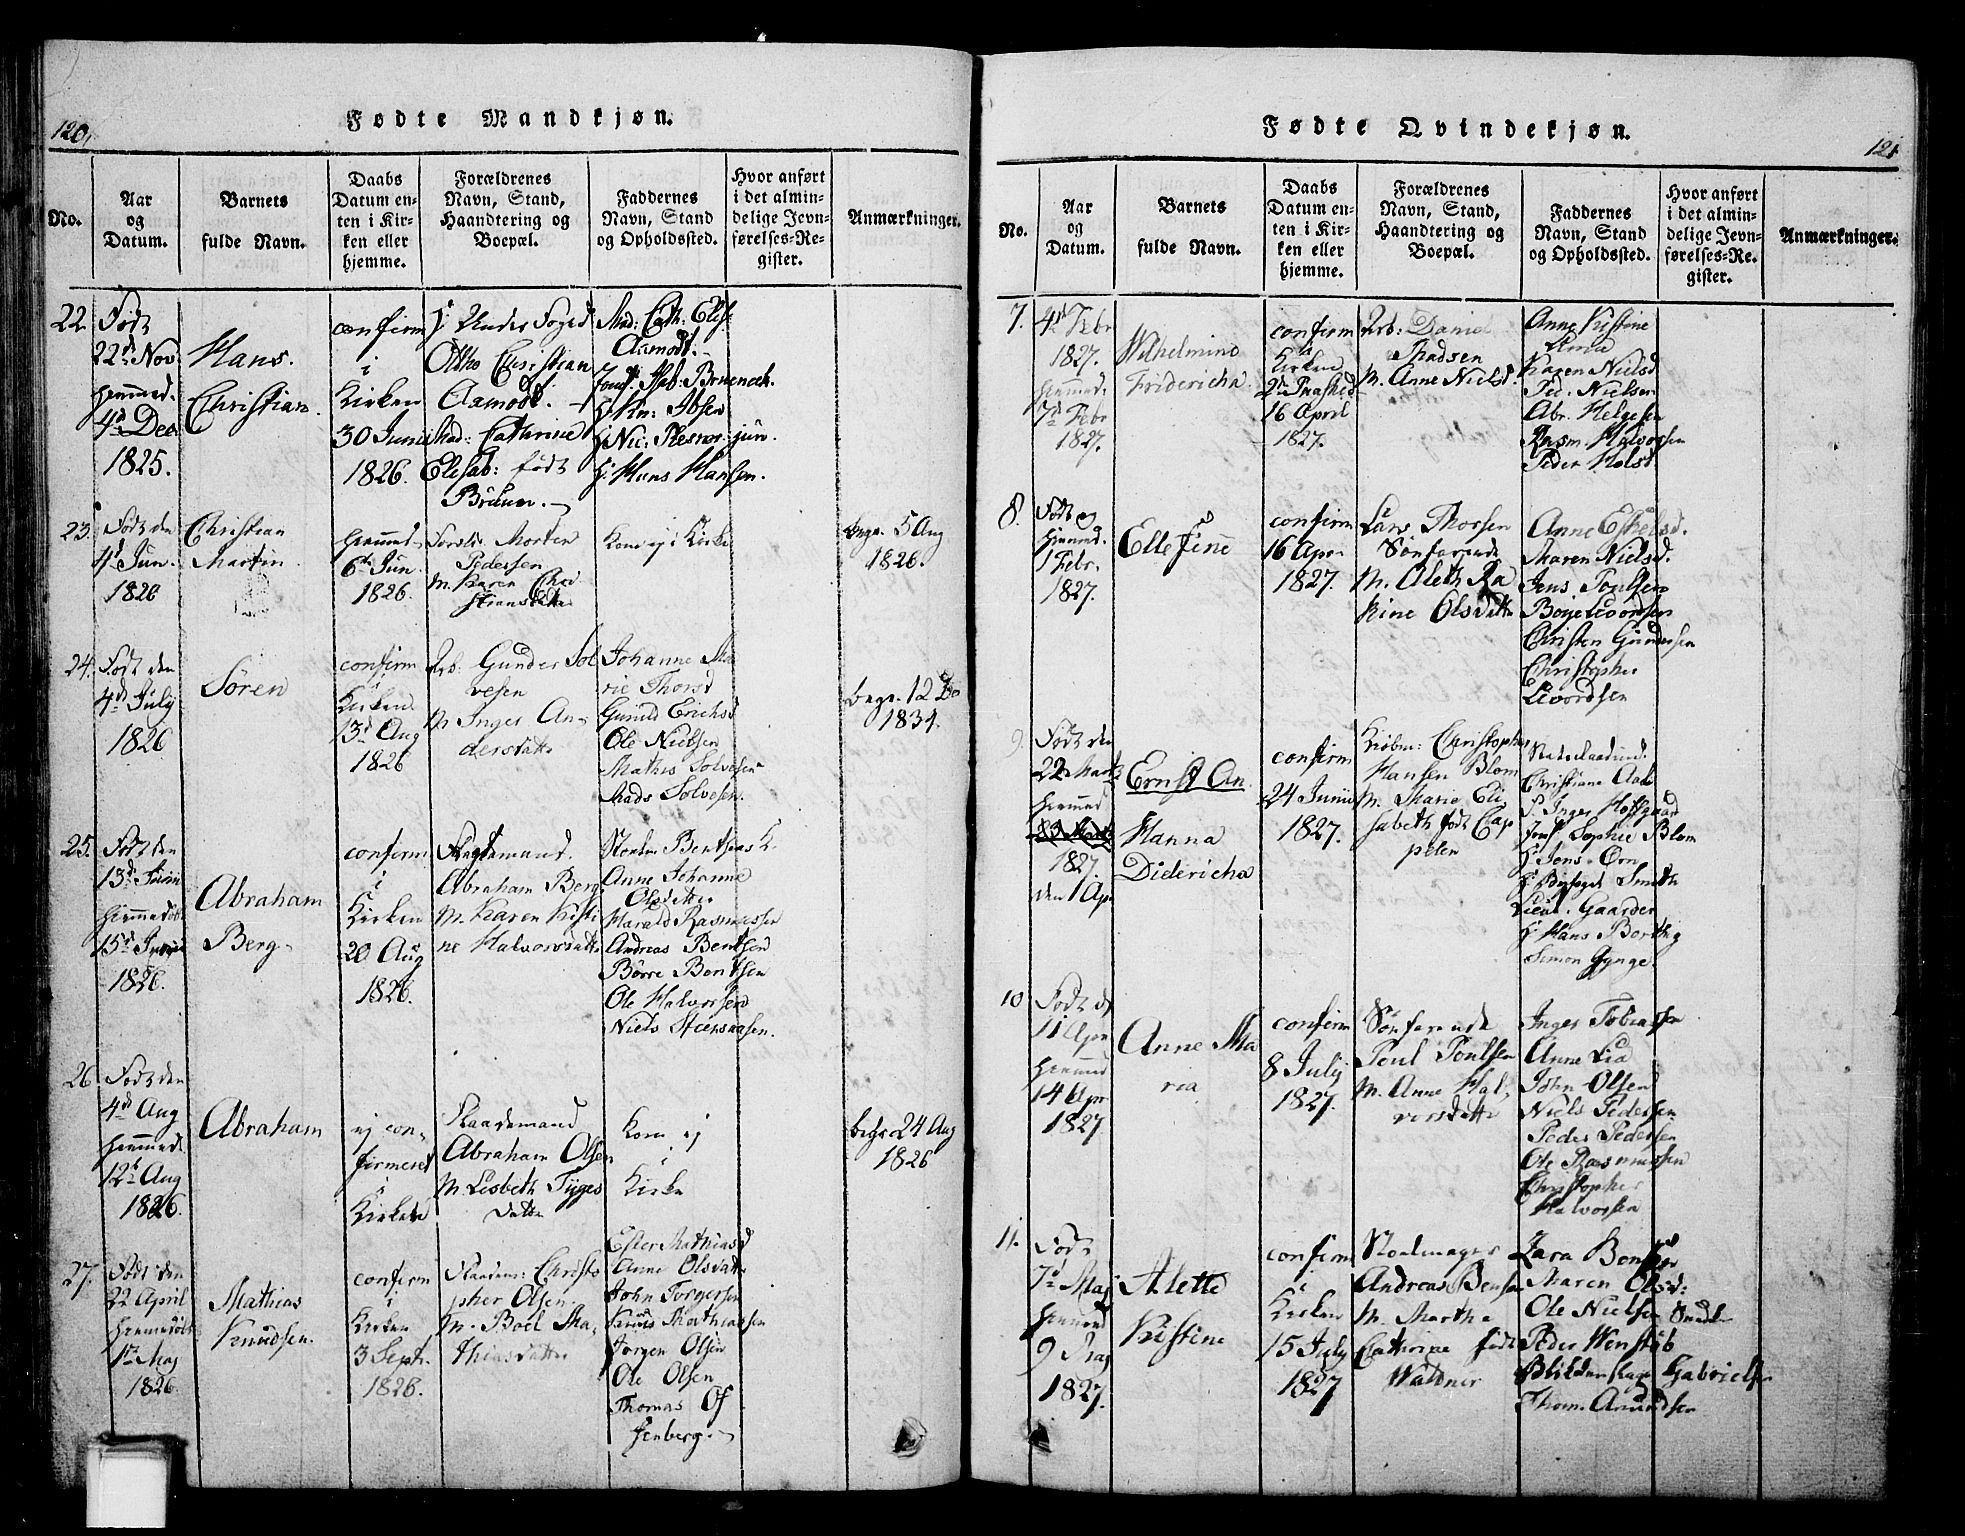 120.
Fødte Mandkjøn.
No.
Aar
og
Datum.
Barnets
fulde Navn.
Daabs
Datum en-
ten i Kir-
ken eller
hjemme.
Forældrenes
Navn, Stand,
Haandtering og
Boepæl.
Faddernes
Navn, Stand
og Opholdssted.
Hvor anført
i det almin-
delige Jevn-
førelses-Re-
gister.
Anmærkninger.
22.
Født
22d Nov.
hjemmed.
4d Dec
1825.
Hans.
Christian.
confirm
i
Kirken
30 Junii
1826.
Under Foged
Otto Christian
Aamodt.
Mad: Cathrine
Elisab: født
Bruun.
Mad: Cath: Elis:
Aamodt.
Jomf:
Ibsen
H. Nic: Plesner jun.
H. Hans Hansen.
23.
Født den
4d Jun.
1826
Christian
Martin.
hjemmed
6d Jun.
1826.
Morten
Pedersen
M. Karen Chri
stiansdatter
Kom ej i Kirke
begr. 5 Aug
1826.
24.
Født den
4d July
1826
Søren
confirm
i
Kirken
13d Aug
1826
Arb. Gunder Sol
vesen
M. Inger An-
dersdatter
Johanne Ma
rie Thorsd
Gunild Erichsd
Ole Nielsen
Mathis Solvesen
Mads Solvesen.
begr. 12 Do
1834.
25.
Født den
13d Junii
hjemmedøbt
15d Junii
1826.
Abraham
Berg.
confirm
i
Kirken
20 Aug
1826.
Abraham Berg
M. Karen Kisti
ne Halvorsdatter
Bentsens K.
Anne Johanne
Olsdatter
Harald Rasmussen
Andreas Bentsen
Børre Bentsen
Ole Halvorsen
Niels
26
Født den
4d Aug
hjemmed.
12d Aug
1826.
Abraham
ej con-
firmeret
i
Kirken
Skaadsmand
Abraham Olsen
M. Lisbeth Tyges
datter
Kom ej
i
Kirke
begr. 24 Aug
1826
27.
Født den
22 April
hjemmedøbt
1ste Maj
1826.
Mathias
Knudsen.
confirm
i
Kirken
3 Septr.
1826.
Christo
pher Olsen.
M. Boel Ma-
thiasdatter
Ester Mathiasd
Anne Olsdatter
John Torgersen
Knud Mathiassen
Jørgen Olsen
Ole Olsen
Thomas Of
fenberg.
Fødte Qvindekjøn.
121
No.
Aar
og
Datum.
Barnets
fulde Navn.
Daabs
Datum en-
ten i Kir-
ken eller
hjemme.
Forældrenes
Navn, Stand,
Haandtering og
Boepæl.
Faddernes
Navn, Stand
og Opholdssted.
Hvor anført
i det almin-
delige Jevn-
førelses-Re-
gister.
Anmærkninger.
7.
4d Febr
1827.
hjemmed.
7d Febr
1827.
Wilhelmine
Fridericha
confirm
i
Kirken
2d Paaskedag
16 April
1827.
Arb: Daniel
Madsen
M. Anne Nielsd.
Anne Kistine
Karen Nielsd
Ped. Nielsen
Abr. Helgesen
Rasm. Halvorsen
Peder
8.
Født og
hjemmed.
Febr.
1827.
Elle Jine
confirm
16 Apr.
1827.
Lars Thorsen
Søefarende
M. Aleth Ka
trine Olsdatter
Anne
Maren Nielsd.
Jens Poulsen
Christen Gundersen
Christopher
9.
Født den
22 Marts
hjemmed
1827.
den 1 Apr
Ernst An
Hanna
Didericha
confirm
24 Junii
1827.
Kiøbm: Christopher
Hansen Blom
M. Marie Eli
sabeth født Cap
pelen
Christiane Aall
F. Inger Hoffgaard
Jomf. Sophie Blom
H. Jens Ørn
H. Byefoged Smith
Lieut. Gaarder
H. Hans
Simon Gynge.
10
Født d
11 Apr
hjemmed
14 Apr
1827
Anne Ma
ria
confirm
8 July
1827.
Søefarende
Poul Poulsen
M. Anne Hal-
vorsdatter
Inger Tobiassen
Anne Lia
John Olsen
Niels Pedersen
Peder Pedersen
Ole Rasmussen
Christopher
Halvorsen
11.
Født
7d Maj
hjemmed
9 Maj
1827.
Alette
Kistine
confirm
i
Kirken
15 July
1827
Stoelmager
Andreas Bensen
M. Marthe
Cathrine født
Waldner
Zara Bentsen
Maren Olsd:
Ole Nielsen Snedker
Peder Wenstøb
Gabrielsen
Thom. Amundsen